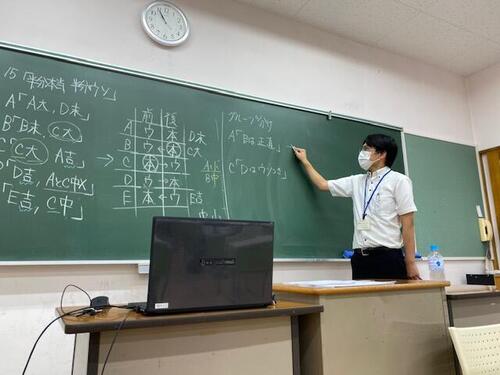 15「半分本当 半分ウソ」
A「A大, D末」
B「B末, C大」
「C大, A吉」
「D吉, A×C中×」
「E吉, C中」
前 後
A ウ 本 D末
B ウ 本 C大
C 本 ウ
D ウ 本
E 本 ウ E吉
グループ分け
A「Bは正直」
C「Dはウソつき」